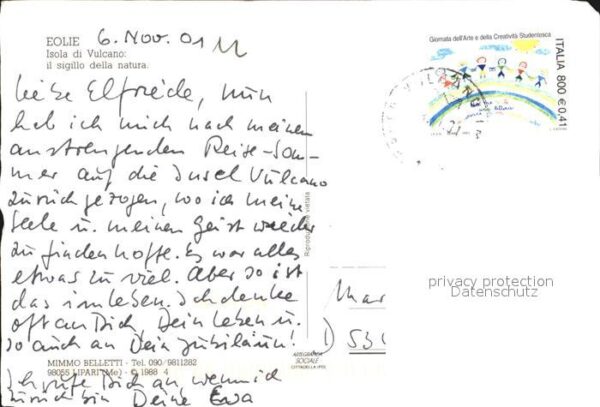 EOLIE 6. Nov. 01
Isola di Vulcano:
il sigillo della natura.
Liebe Elfriede, nun
hab ich mich nach meinem
anstrengenden Reise-Som-
mer auf die Insel Vulcano
zurückgezogen, wo ich meine
Seele u. meinen Geist wieder
zu finden hoffe. Es war alles
etwas zu viel. Aber so ist
das im Leben. Ich denke
oft an Dich, Dein Leben u.
so auch an Dein Jubiläum!
MIMMO BELLETTI - Tel. 090/9811282
98055 LIPARI (Me) - © 1988 4
Ich rufe Dich an, wenn ich
zurück bin Deine Ewa
Riproduzione vietata
ARTEGRAFICA
SOCIALE
CITTADELLA (PD)
Giornata dell'Arte e della Creatività Studentesca
ITALIA 800 € 0,41
privacy protection
Datenschutz
Mar
D 530